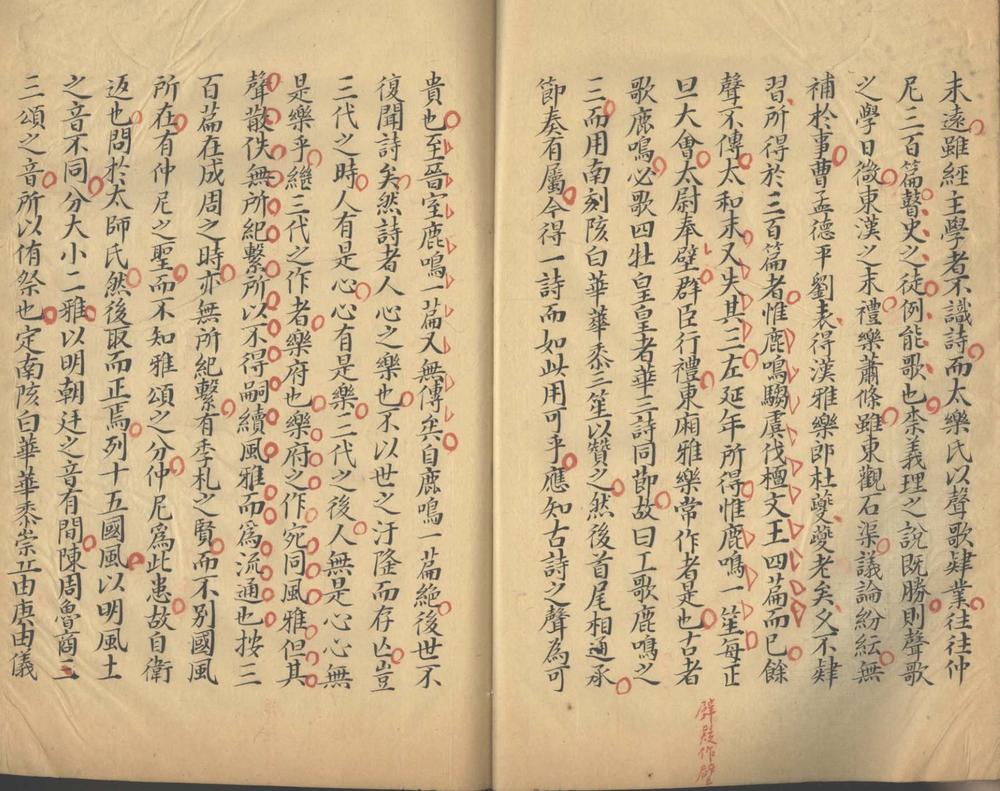 未遠雖經主學者不識詩而太樂氏以聲歌肄業往往仲
尼三百篇瞽史之徒例能歌也柰義理之說既勝則聲歌
之學日微東漢之末禮樂蕭條雖東觀石渠議論紛紜無
補於事曹孟德平劉表得漢雅樂郎杜夔夔老矣久不肄
習所得於三百篇者惟鹿鳴騶虞伐檀文王四篇而已餘
聲不傳太和末又失其三左延年所得惟鹿鳴一笙每正
旦大會太尉奉璧群臣行禮東廂雅樂常作者是也古者
歌鹿鳴必歌四牡皇皇者華三詩同節故曰工歌鹿鳴之
三而用南刻陔白華華黍三笙以贊之然後首尾相通承
節奏有屬今得一詩而如此用可乎應知古詩之聲為可
貴也至晉室鹿鳴一篇又無傳矣自鹿鳴一篇絕後世不
復聞詩矣然詩者人心之樂也不以世之汙隆而存亡豈
三代之時人有是心心有是樂三代之後人無是心心無
是樂乎繼三代之作者樂府也樂府之作宛同風雅但其
聲散佚無所紀繫所以不得嗣續風雅而爲流通也按三
百篇在成周之時亦無所紀繫有季札之賢而不別國風
所在有仲尼之聖而不知雅頌之分仲尼爲此患故自衛
返也問於太師氏然後取而正焉列十五國風以明風土
之音不同分大小二雅以明朝廷之音有間陳周魯商三
三頌之音所以侑祭也定南陔白華華黍崇丘由庚由儀
璧疑作壁